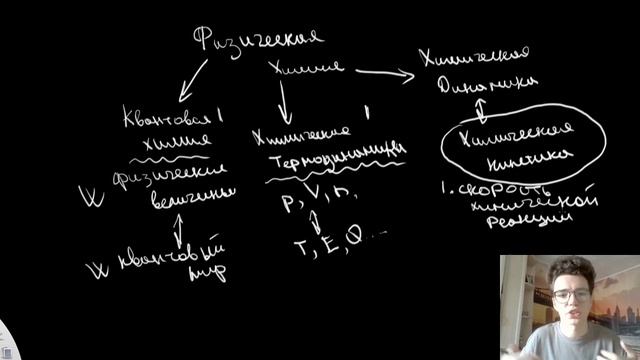 Физическая
Химия
Квантовая
химия
физические
величины
квантовый
мир
Химическая
Термодинамика
P, V, n,
T, E, Q...
Химическая
Динамика
Химическая
кинетика
1. скорость
химической
реакции